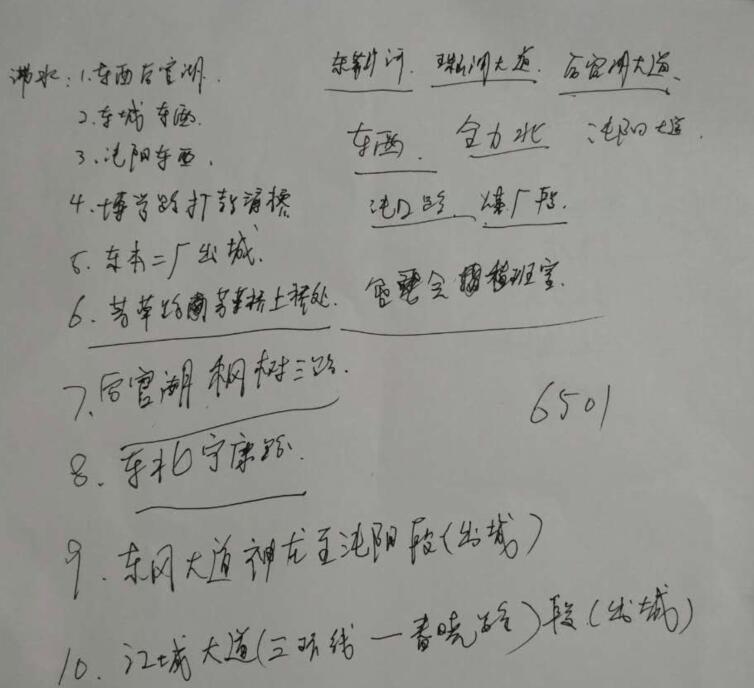 渍水：1.东西后官湖.
2.东城东西.
3.沌阳东西.
4.博学路打鼓渡桥
5.东本二厂出城.
6.芳草路 芳草桥上桥处.
7.后官湖枫树三路.
8.东北宁康路.
9.东风大道神龙至沌阳段(出城)
10.江城大道(三环线一春晓路)段(出城)
东荆河 珠山湖大道. 后官湖大道.
东西. 全力北 沌阳大道.
沌口路. 煤厂段.
值班室.
6501